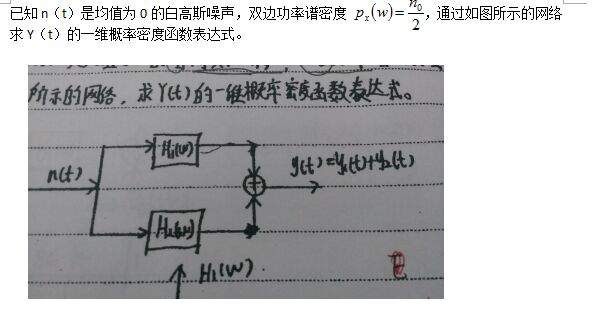 已知 n（t）是均值为 0 的白高斯噪声，双边功率谱密度 pₓ(w)=n₀/2，通过如图所示的网络
求 Y（t）的一维概率密度函数表达式。
所示的网络，求Y(t)的一维概率密度函数表达式。
H₁(w)
n(t)
y(t)=y₁(t)+y₂(t)
+
H₂(w)
H₁(w)